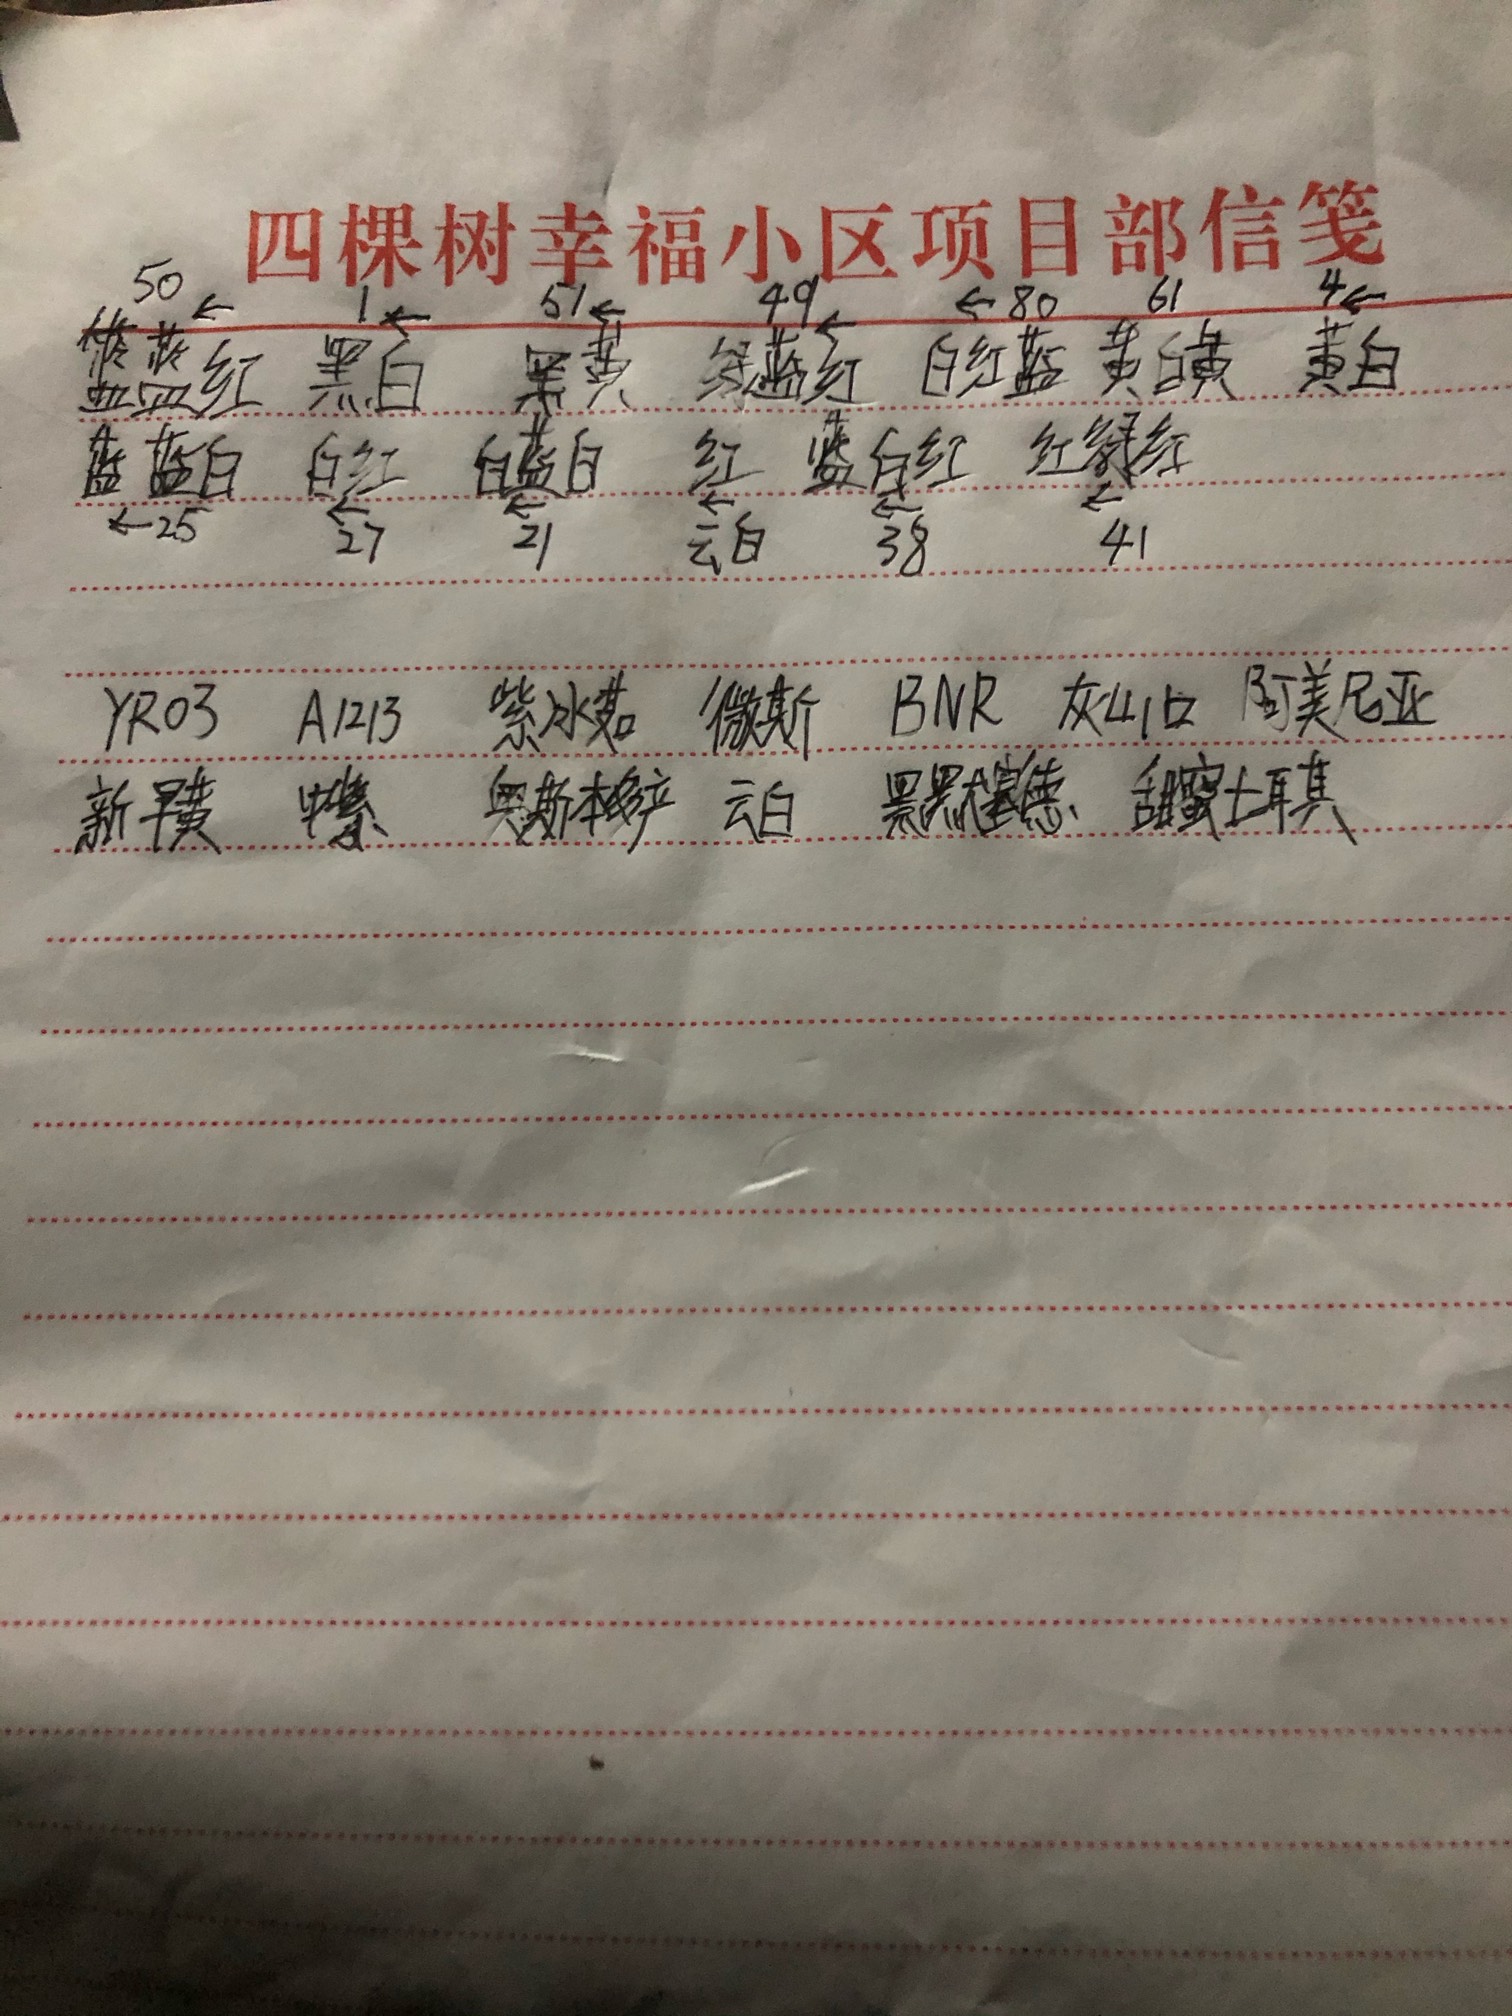 四棵树幸福小区项目部信笺
50← 1← 51← 49← ←80 61 4←
蓝蓝红 黑白 黑黄 绿蓝红 白红蓝 黄白黄 黄白
蓝蓝白 白红 白蓝白 红 蓝白红 红绿红
←25 ←27 ←21 ←云白 ←38 ←41
YR03 A1213 紫冰茗 傲斯 BNR 灰山口 阿美尼亚
新早黄 中紫 奥斯本 云白 黑黑 塞德 甜蜜土耳其